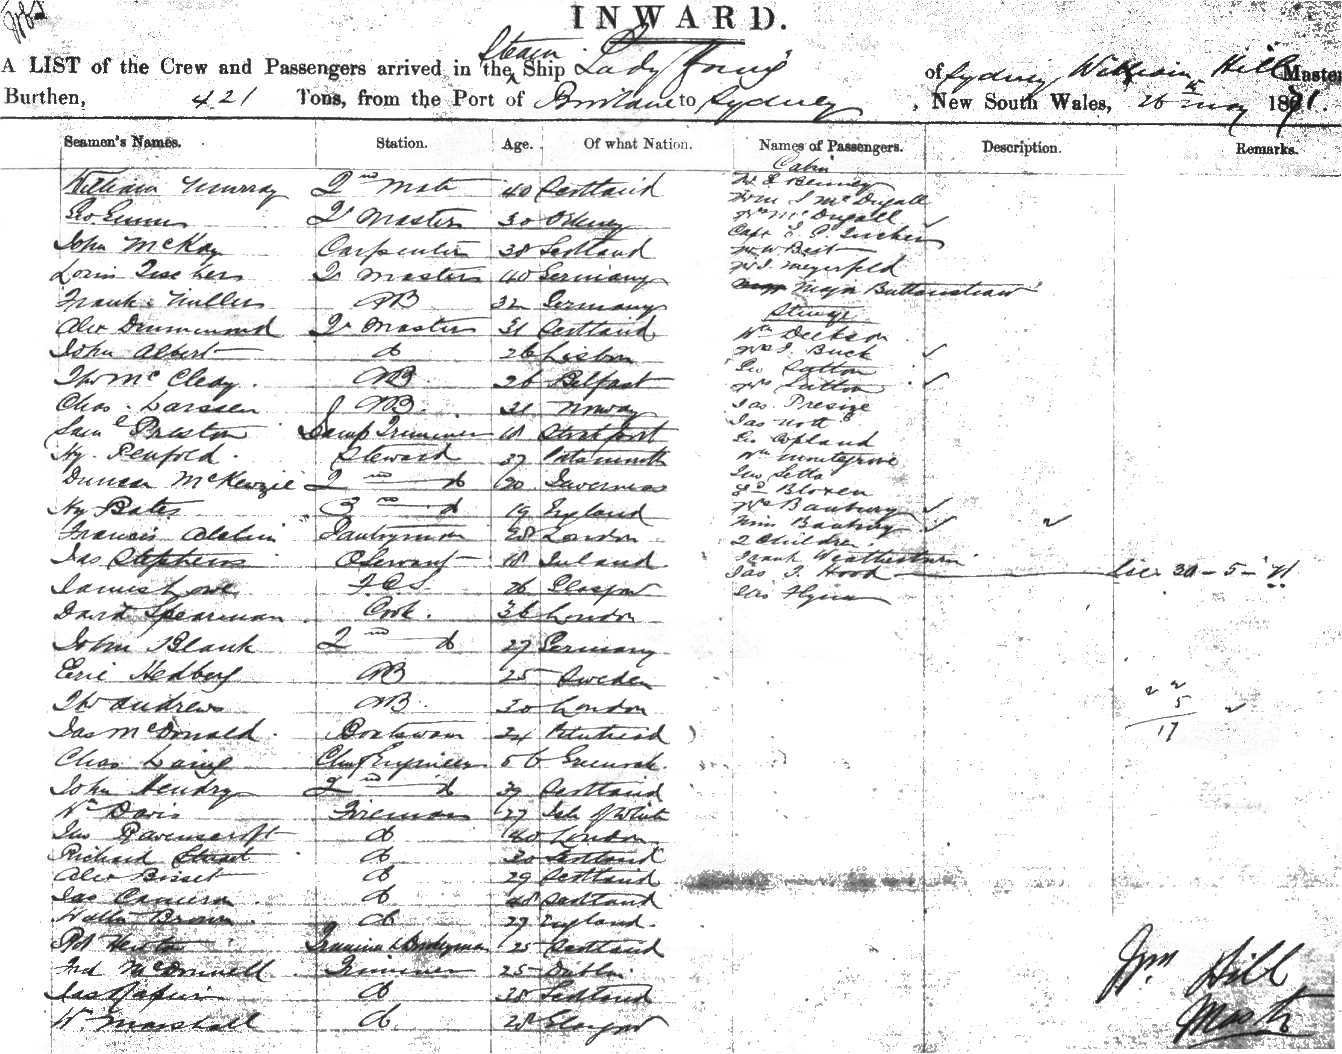 INWARD.
A LIST of the Crew and Passengers arrived in the Steam Ship Lady Young of Sydney, William Hill Master
Burthen, 421 Tons, from the Port of Brisbane to Sydney, New South Wales, 26th May 1871.
Seamen's Names. Station. Age. Of what Nation. Names of Passengers. Description. Remarks.
Cabin
William Murray 2nd Mate 40 Scotland
Geo 30 Orkney
John McKay Carpenter 38 Scotland
Qr Masters 40 Germany
Frank Muller AB 32 Germany
Alex Drummond Qr Masters 31 Scotland
John Albert do 26 Lisbon
Thos McCledy AB 26 Belfast
Chas. Larssen AB. 31 Norway
Saml Preston Lamp Trimmer 18
Hy. Penfold. Steward 37 Portsmouth
Duncan McKenzie 2nd do 20 Inverness
Hy Bates 3rd do 19 England
Francis Pantryman 28 London
Jas Stephens Servant 18 Ireland
James Love F.C.S. 26 Glasgow
David Spearman Cook. 36 London
John Blank 2nd do 27 Germany
Eric Hedberg AB 25 Sweden
Thos Andrews AB. 30 London
Jas McDonald Boatswain 34 Peterhead
Chas Laing Chief Engineer 56 Greenock.
John Hendry 2nd do 39 Scotland
Wm Davis Fireman 27 Isle of White
Jas Ravenscroft do 40 London
Richard Stuart do 30 Scotland
Alex Bisset do 29 Scotland
Jas Cameron do 48 Scotland
Walter Brown do 27 England.
Trimmer & Donkeyman 25 Scotland
Fred McDonnell Trimmer 25 Dublin.
Jas Napier do 38 Scotland
W. Marshall do. 28 Glasgow
Mr McDugall
Mr W Best
Mr J. Meyerfeld
Steerage
Wm Dickson
Mrs J. Buck
Geo Sutton
Mrs Sutton
Jas Nott
Geo Copland
Wm Montgrove
Mrs Banbury
Miss Banbury
2 Children
Jas. T. Hood Lic 30-5-71
Jas Flynn
22
5
17
Wm Hill
Master